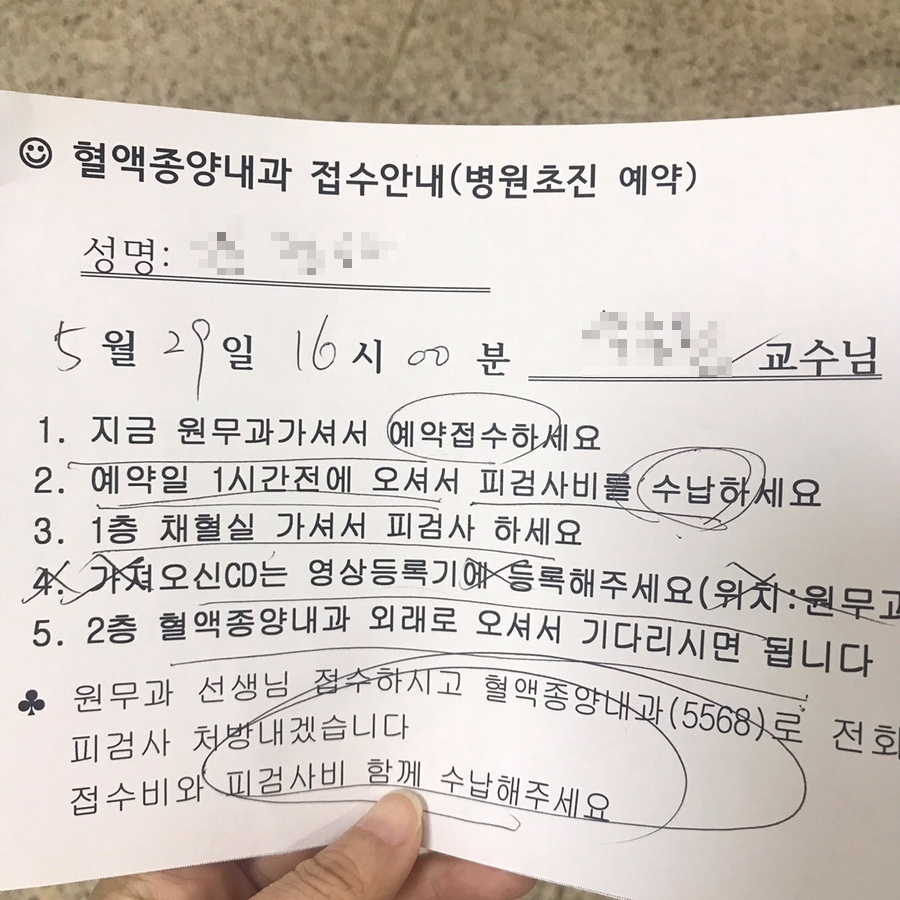 혈액종양내과 접수안내(병원초진 예약)
성명:
5월 29일 16시 00분 교수님
1. 지금 원무과가셔서 예약접수하세요
2. 예약일 1시간전에 오셔서 피검사비를 수납하세요
3. 1층 채혈실 가셔서 피검사 하세요
4. 가져오신CD는 영상등록기에 등록해주세요(위치:원무과
5. 2층 혈액종양내과 외래로 오셔서 기다리시면 됩니다
♣ 원무과 선생님 접수하시고 혈액종양내과(5568)로 전화
피검사 처방내겠습니다
접수비와 피검사비 함께 수납해주세요